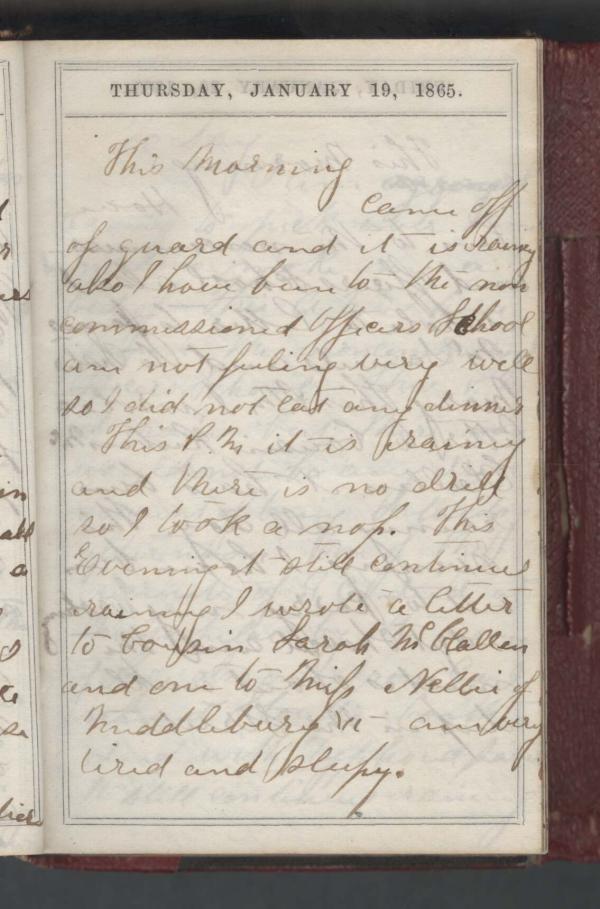 THURSDAY, JANUARY 19, 1865.
This Morning
came off
of guard and it is rainy
also I have been to the non
commissioned Officers School
am not feeling very well
so I did not eat any dinner
This P.M it is rainy
and there is no drill
so I took a nap. This
Evening it still continues
raining I wrote a letter
to Cousin Sarah McClallen
and one to Miss Nellie of
Middlebury Vt am very
tired and sleepy.